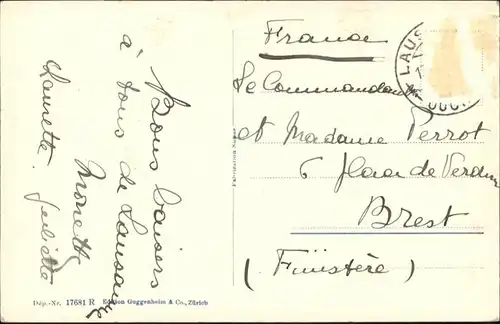 Bons baisers
à tous de Lausanne
Ninette
Laurette. Juliette
France
Le Commandant
et Madame Perrot
6 Place de Verdun
Brest
(Finistère)
LAUS
Dép.-Nr. 17681 R Edition Guggenheim & Co., Zürich